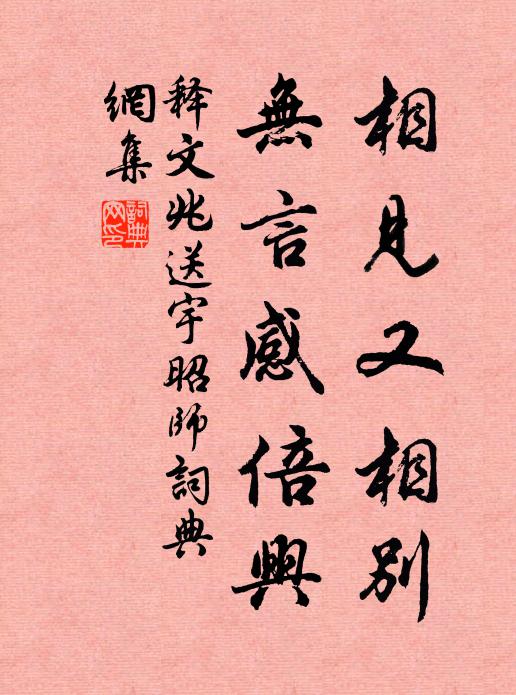 相見又相別
無言感倍興
释文兆送宇昭師詞典
網集
詞典網印